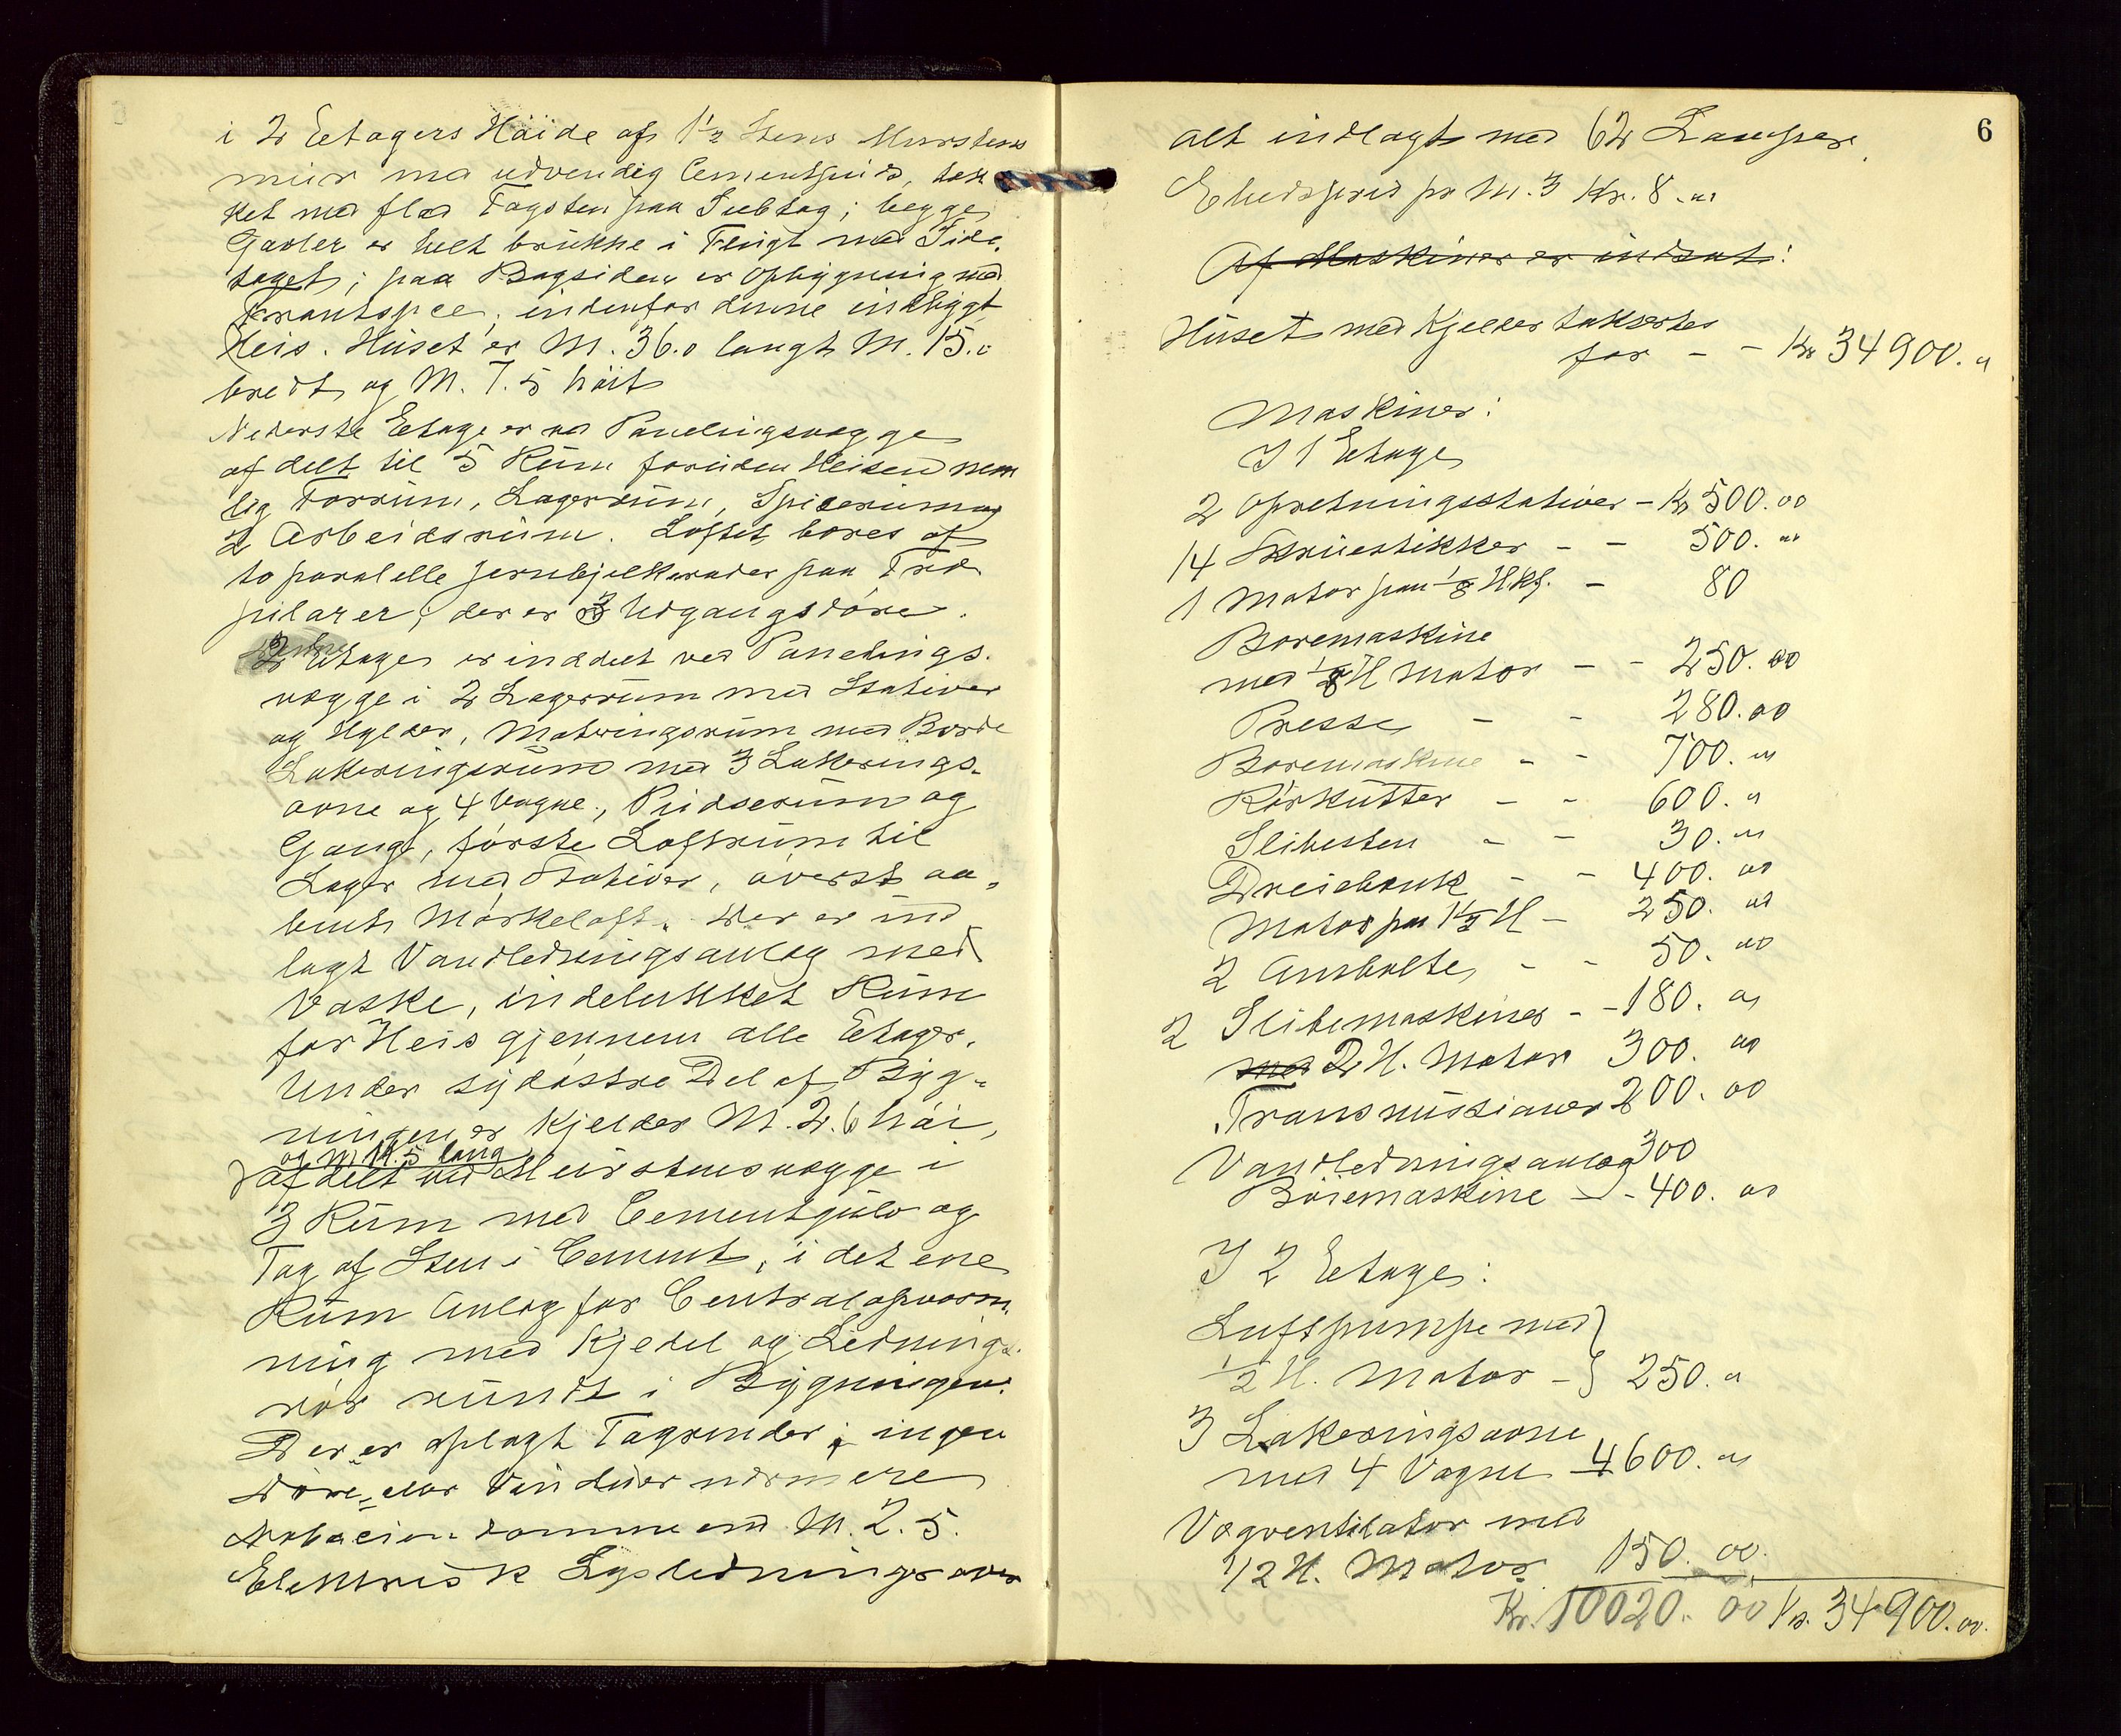 i 2 Etagers Höide af 1½ Stens Murstens
mur med udvendig Cementpuds, tæk
ket med flad Tagsten paa Subtag; begge
Gavler er helt brukne i Flugt med Side
taget; paa Bagsiden er Opbygning med
Frontspee, indenfor denne indbygt
Heis. Huset er M. 36.0 langt M. 15.0
bredt og M. 7.5 höit
Nederste Etage er ved Panelingsvægge
afdelt til 5 Rum foruden Heisen nem
lig Forrum, Lagerrum, Spiserum og
2 Arbeidsrum. Loftet bæres af
to paralelle Jernbjelkerader paa Træ
pilarer; der er 3 Udgangsdöre.
2 Etage er inddelt ved Panelings-
vægge i 2 Lagerrum med Stativer
og Hylder, Monteringsrum med Borde
Lakeringsrum med 3 Lakerings-
ovne og 4 Vogne, Pudserum og
Gang, förste Loftrum til
Lager med Stativer, överst aa-
bent Mörkeloft. Der er ind
lagt Vandledningsanlæg med
Vaske, indelukket Rum
for Heis gjennem alle Etager.
Under sydöstre Del af Byg-
ningen er Kjelder M. 2.6 höi,
og M 14.5 lang
afdelt ved Murstensvægge i
3 Rum med Cementgulv og
Tag af Sten i Cement, i det ene
Rum Anlæg for Centralopvarm
ning med Kjedel og Lednings-
rör rundt i Bygningen.
Der er oplagt Tagrender; ingen
Döre eller Vinduer nærmere
Naboeiendomme end M. 2.5.
Elektrisk Lysledninger over
6
alt indlagt med 62 Lamper
Enhedspris pr M.3 Kr. 8.00
Af Maskiner er indsat:
Huset med Kjelder takseres
for - - Kr 34900.00
Maskiner:
I 1 Etage
2 Opretningsstativer - Kr 500.00
14 Skruestikker - - 500.00
1 Motor paa 1/8 HK. - 80
Boremaskine
med 1/8 H Motor - - 250.00
Presse - - 280.00
Boremaskine - - 700.00
Rörkutter - - 600.00
Slibesten - - 30.00
Dreiebænk - - 400.00
Motor paa 1½ H - 250.00
2 Ambolte - - 50.00
2 Slibemaskiner - - 180.00
med 2 H. Motor 300.00
Transmissioner 200.00
Vandledningsanlæg 300
Böiemaskine - - 400.00
I 2 Etage:
Luftpumpe med }
1/2 H. Motor - } 250.00
3 Lakeringsovne
med 4 Vogne 4600.00
Vægventilator med
1/2 H. Motor 150.00
Kr. 10020.00 Kr. 34900.00